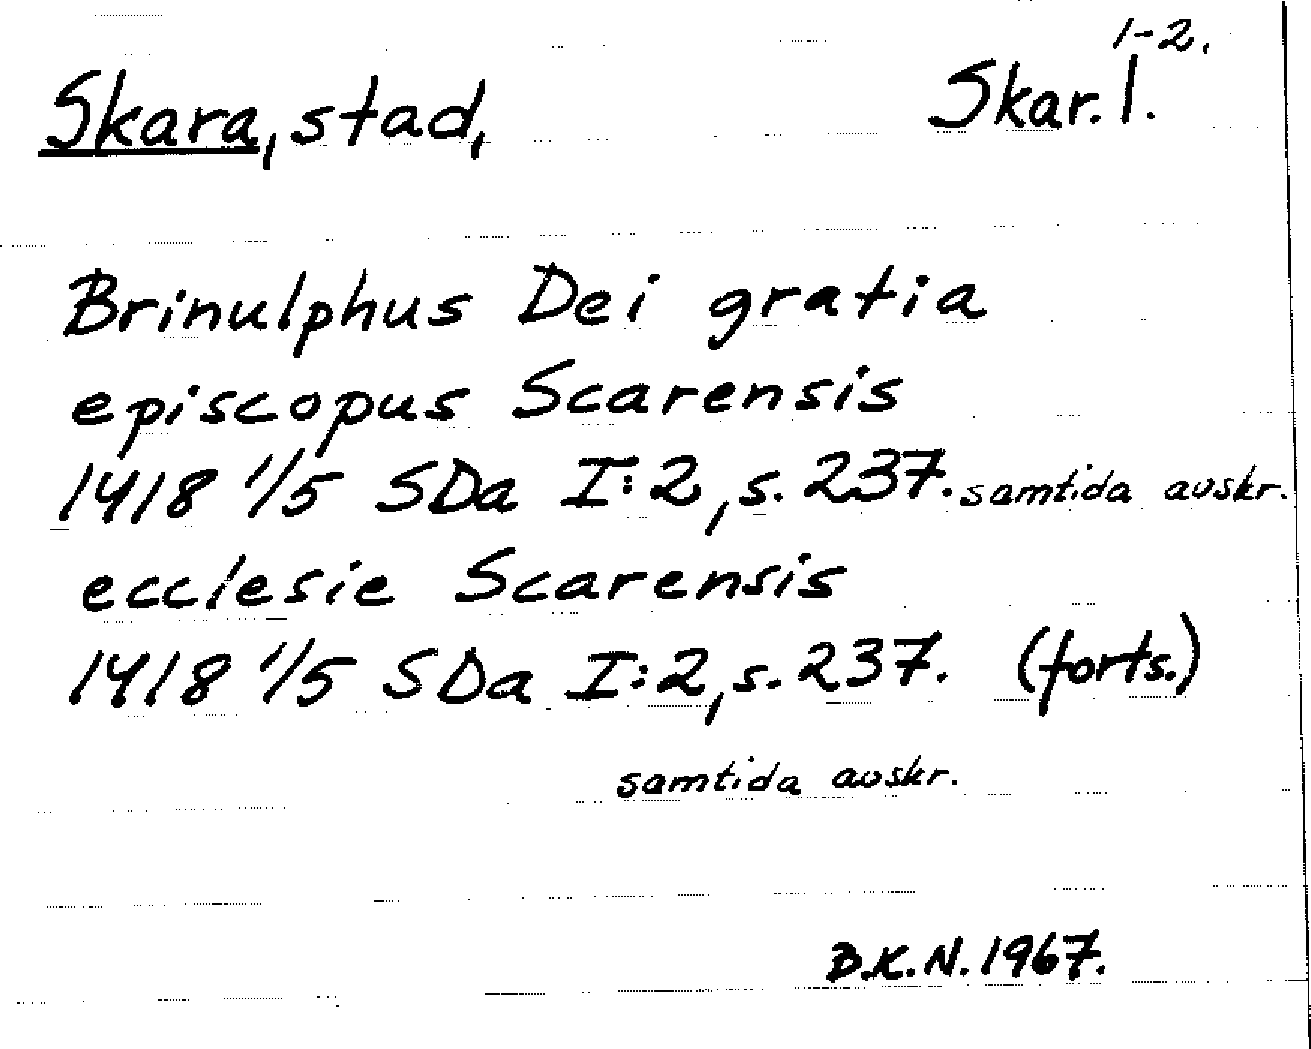 1-2.
Skara, stad, Skar. 1.
Brinulphus Dei gratia
episcopus Scarensis
1418 1/5 SDa I:2, s. 237. samtida avskr.
ecclesie Scarensis
1418 1/5 SDa I:2, s. 237. (forts.)
samtida avskr.
B.K.N. 1967.